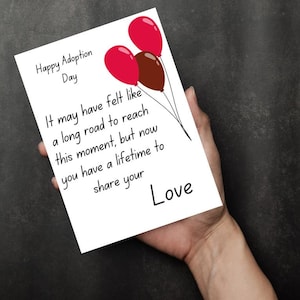 Happy Adoption
Day
It may have felt like
a long road to reach
this moment, but now
you have a lifetime to
share your
Love